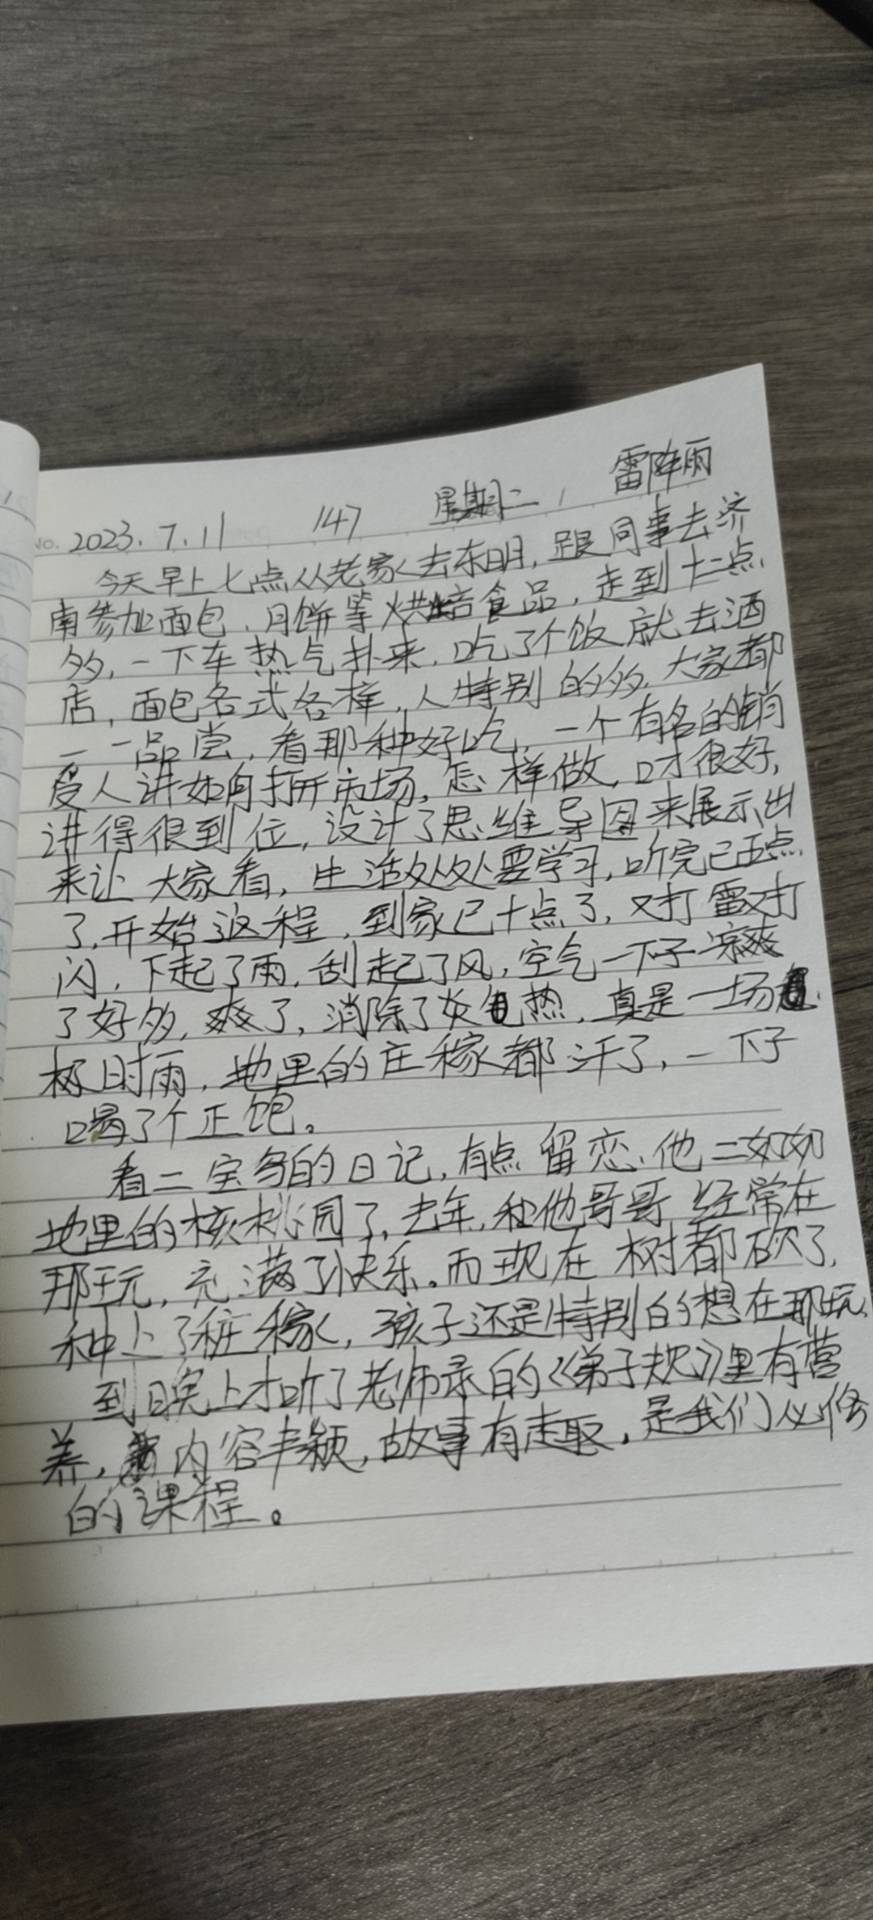 No. 2023.7.11 147 星期二 雷阵雨
今天早上七点从老家去东明,跟同事去济
南参加面包、月饼等烘焙食品,走到十二点
多,一下车热气扑来,吃了个饭就去酒
店,面包各式各样,人特别的多,大家都
一一品尝,看那种好吃,一个有名的销
受人讲如何打开市场,怎样做,口才很好,
讲得很到位,设计了思维导图来展示出
来让大家看,生活处处要学习,听完已五点
了,开始返程,到家已十点了,又打雷又打
闪,下起了雨,刮起了风,空气一下子凉爽
了好多,爽了,消除了炎热,真是一场
及时雨,地里的庄稼都汗了,一下子
喝了个正饱。
看二宝写的日记,有点留恋,他二奶奶
地里的核桃园了,去年,和他哥哥经常在
那玩,充满了快乐。而现在树都砍了,
种上了桩稼,孩子还是特别的想在那玩,
到晚上才听了老师录的《弟子规》里有营
养,内容丰颖,故事有趣,是我们必修
的课程。